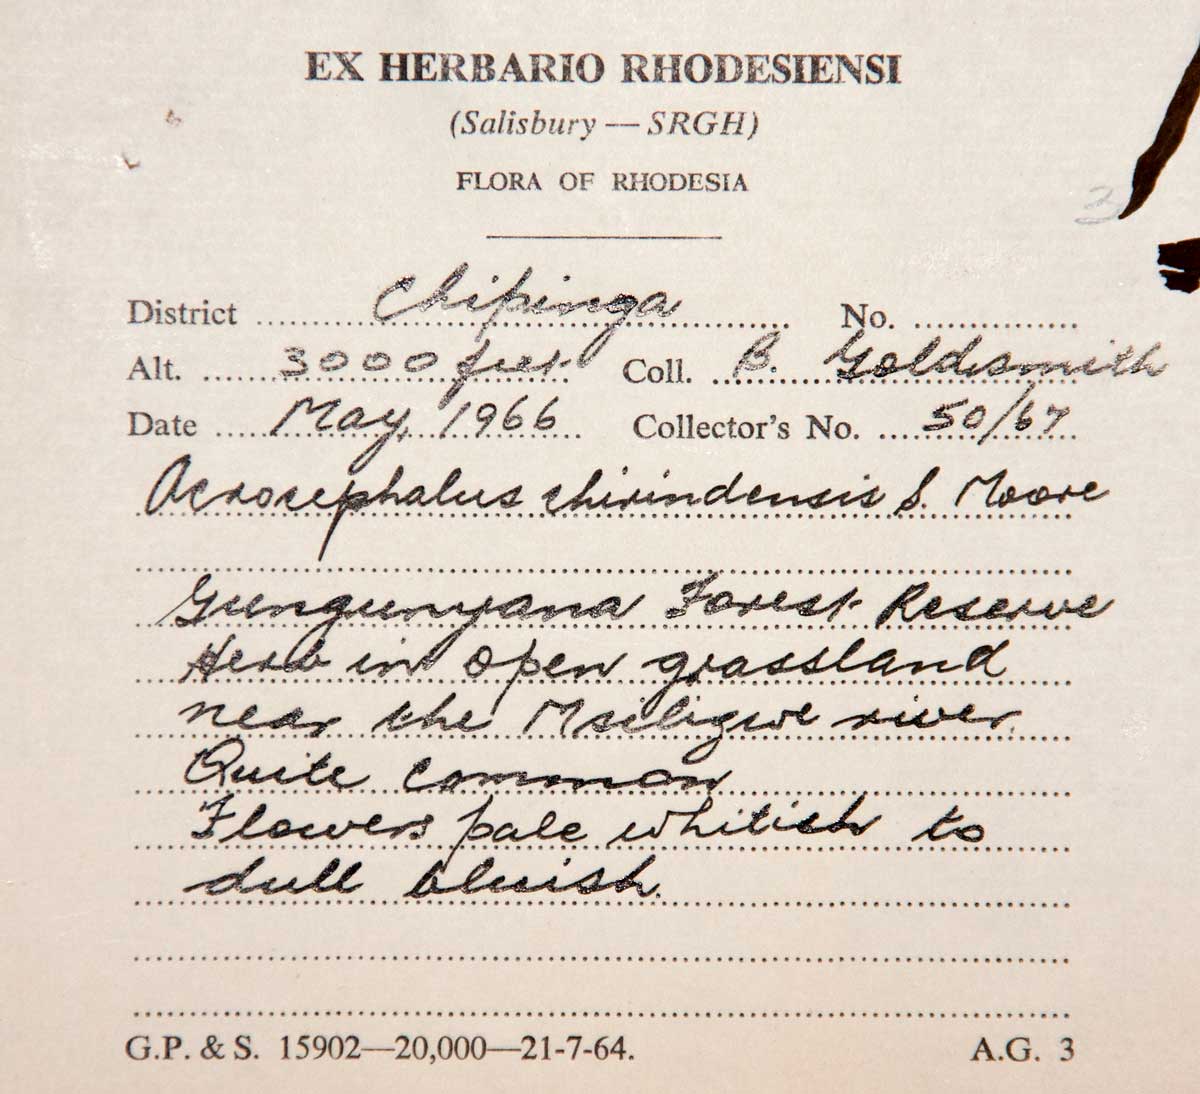 EX HERBARIO RHODESIENSI
(Salisbury — SRGH)
FLORA OF RHODESIA
District Chipinga No.
Alt. 3000 feet Coll. B. Goldsmith
Date May, 1966 Collector's No. 50/67
Acrocephalus chirindensis S. Moore
Gungunyana Forest Reserve
Herb in open grassland
near the Msiligwe river.
Quite common
Flowers pale whitish to
dull bluish.
G.P. & S. 15902—20,000—21-7-64. A.G. 3